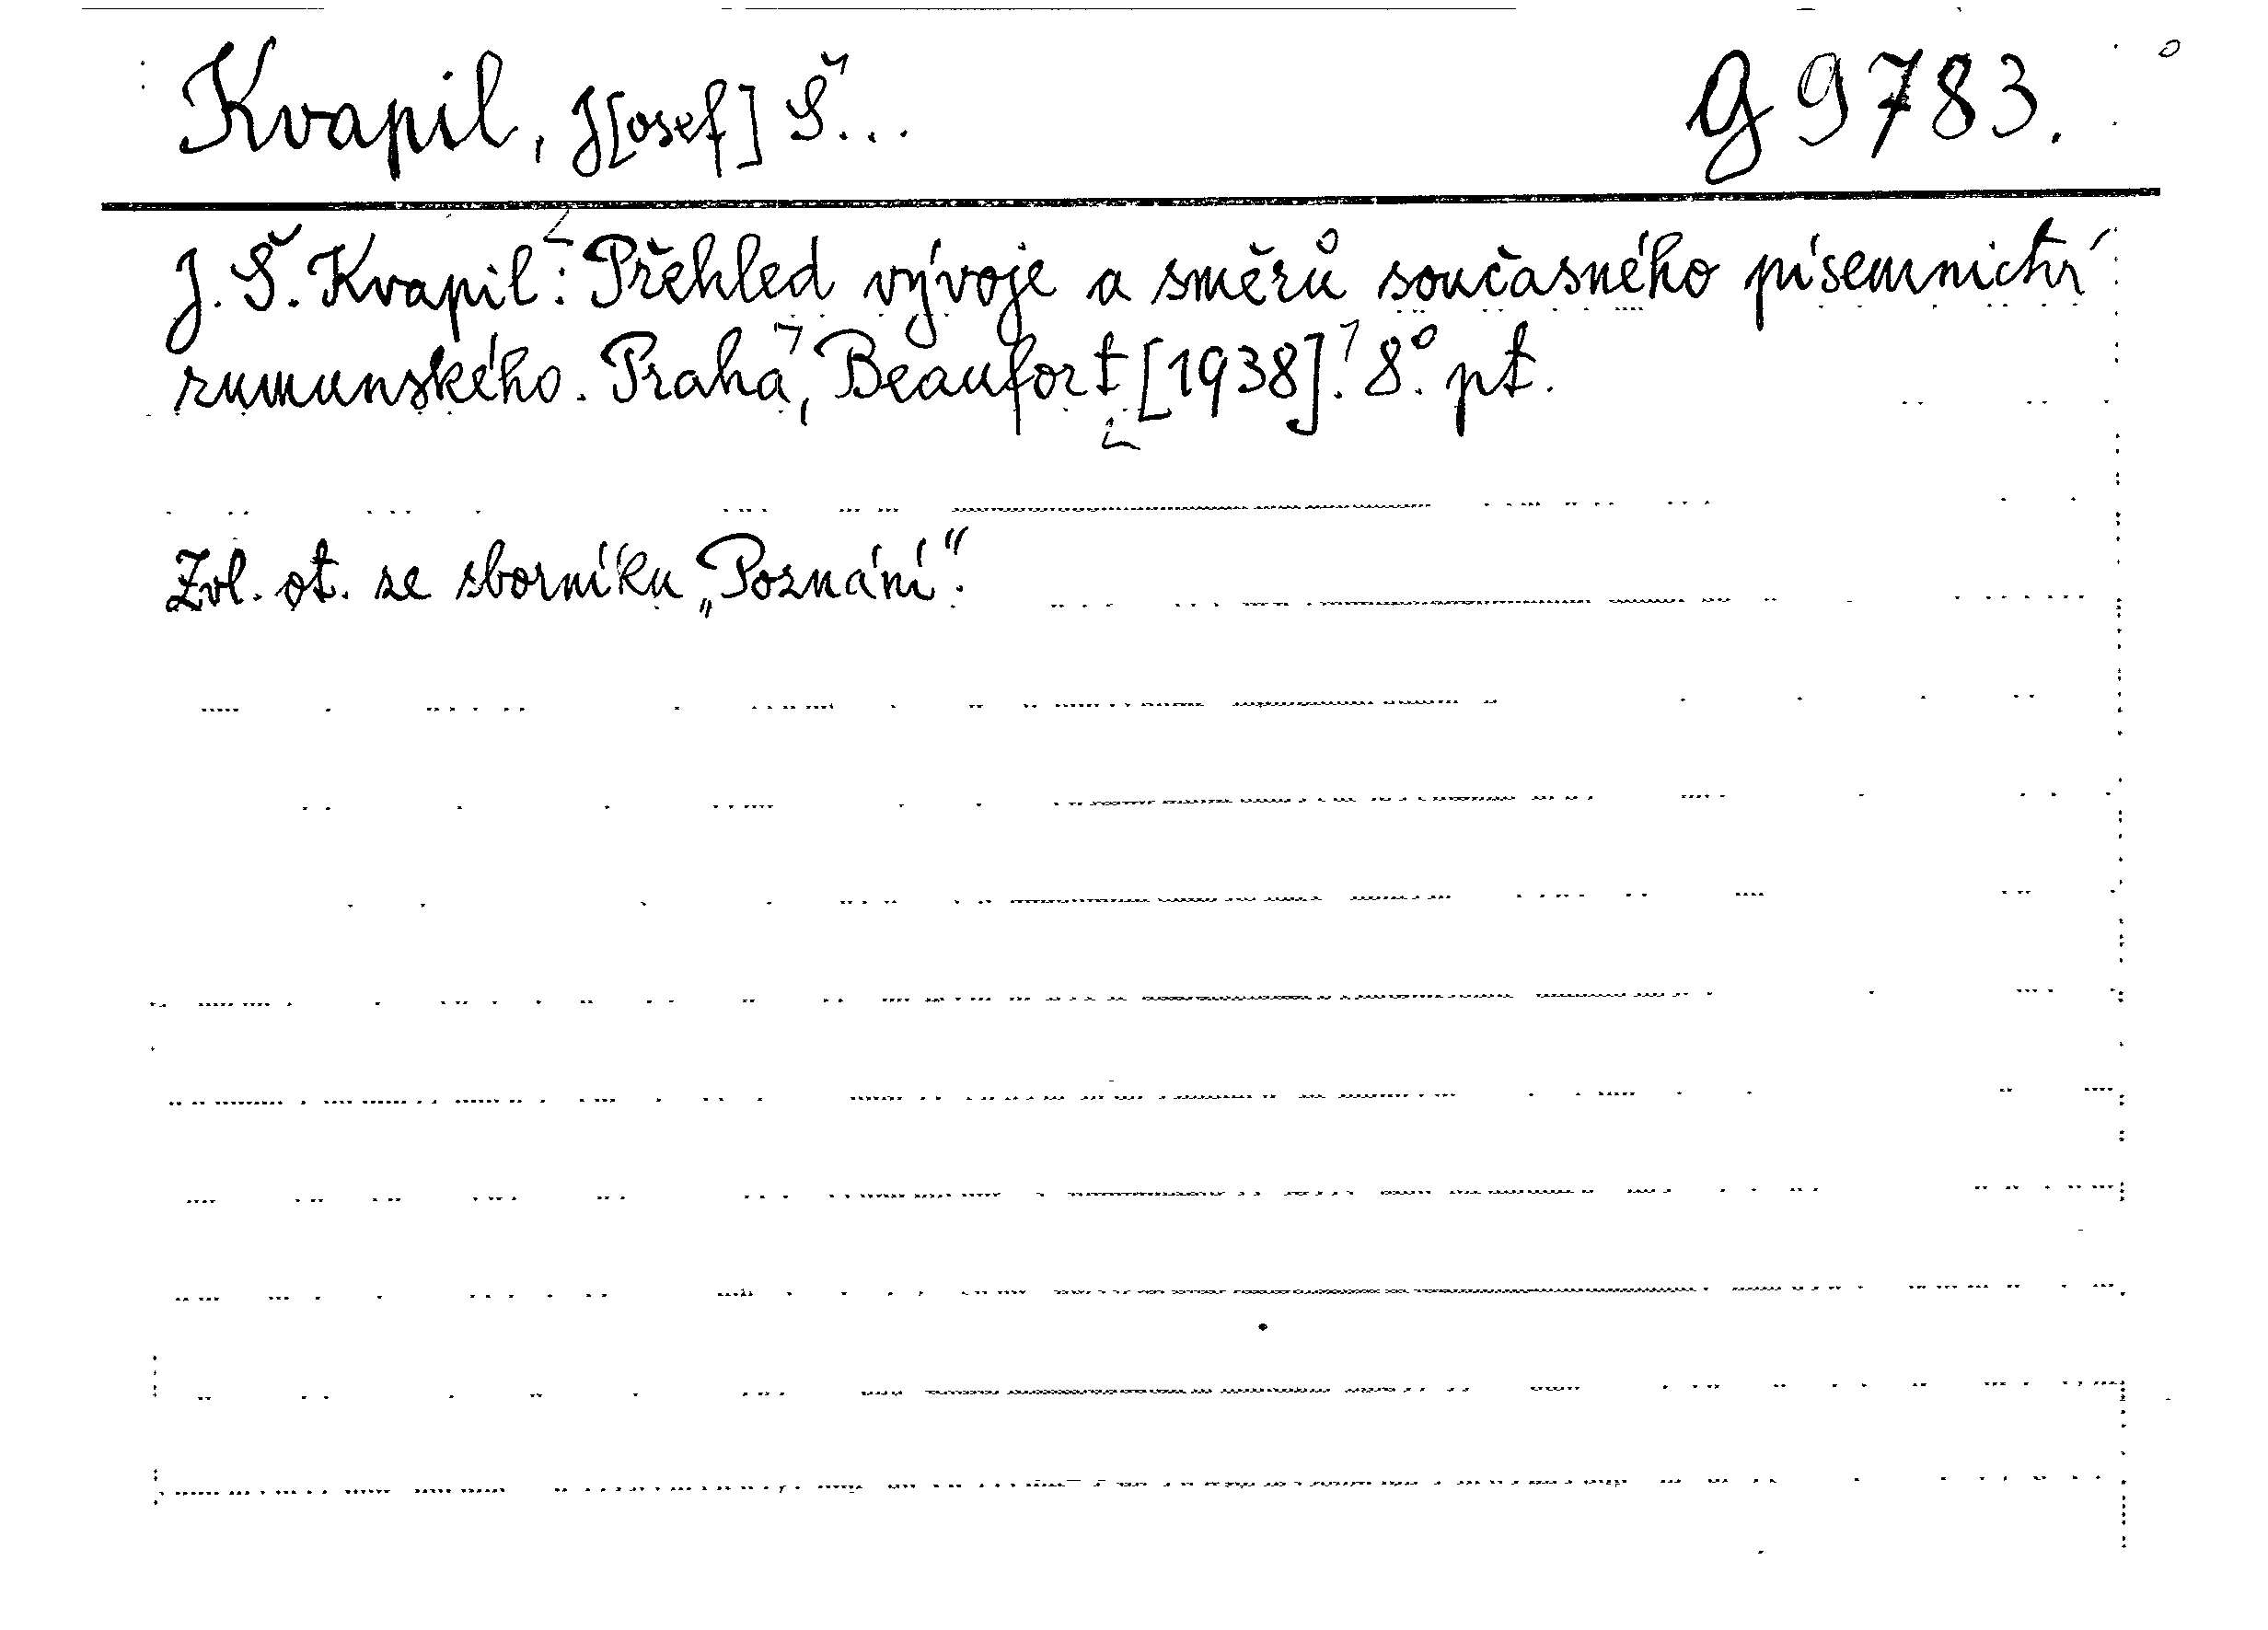 Kvapil, J[osef] Š... G 9783.
J. Š. Kvapil: Přehled vývoje a směrů současného písemnictví
rumunského. Praha, Beaufort [1938]. 8°. pt.
Zvl. ot. ze sborníku „Poznání“.